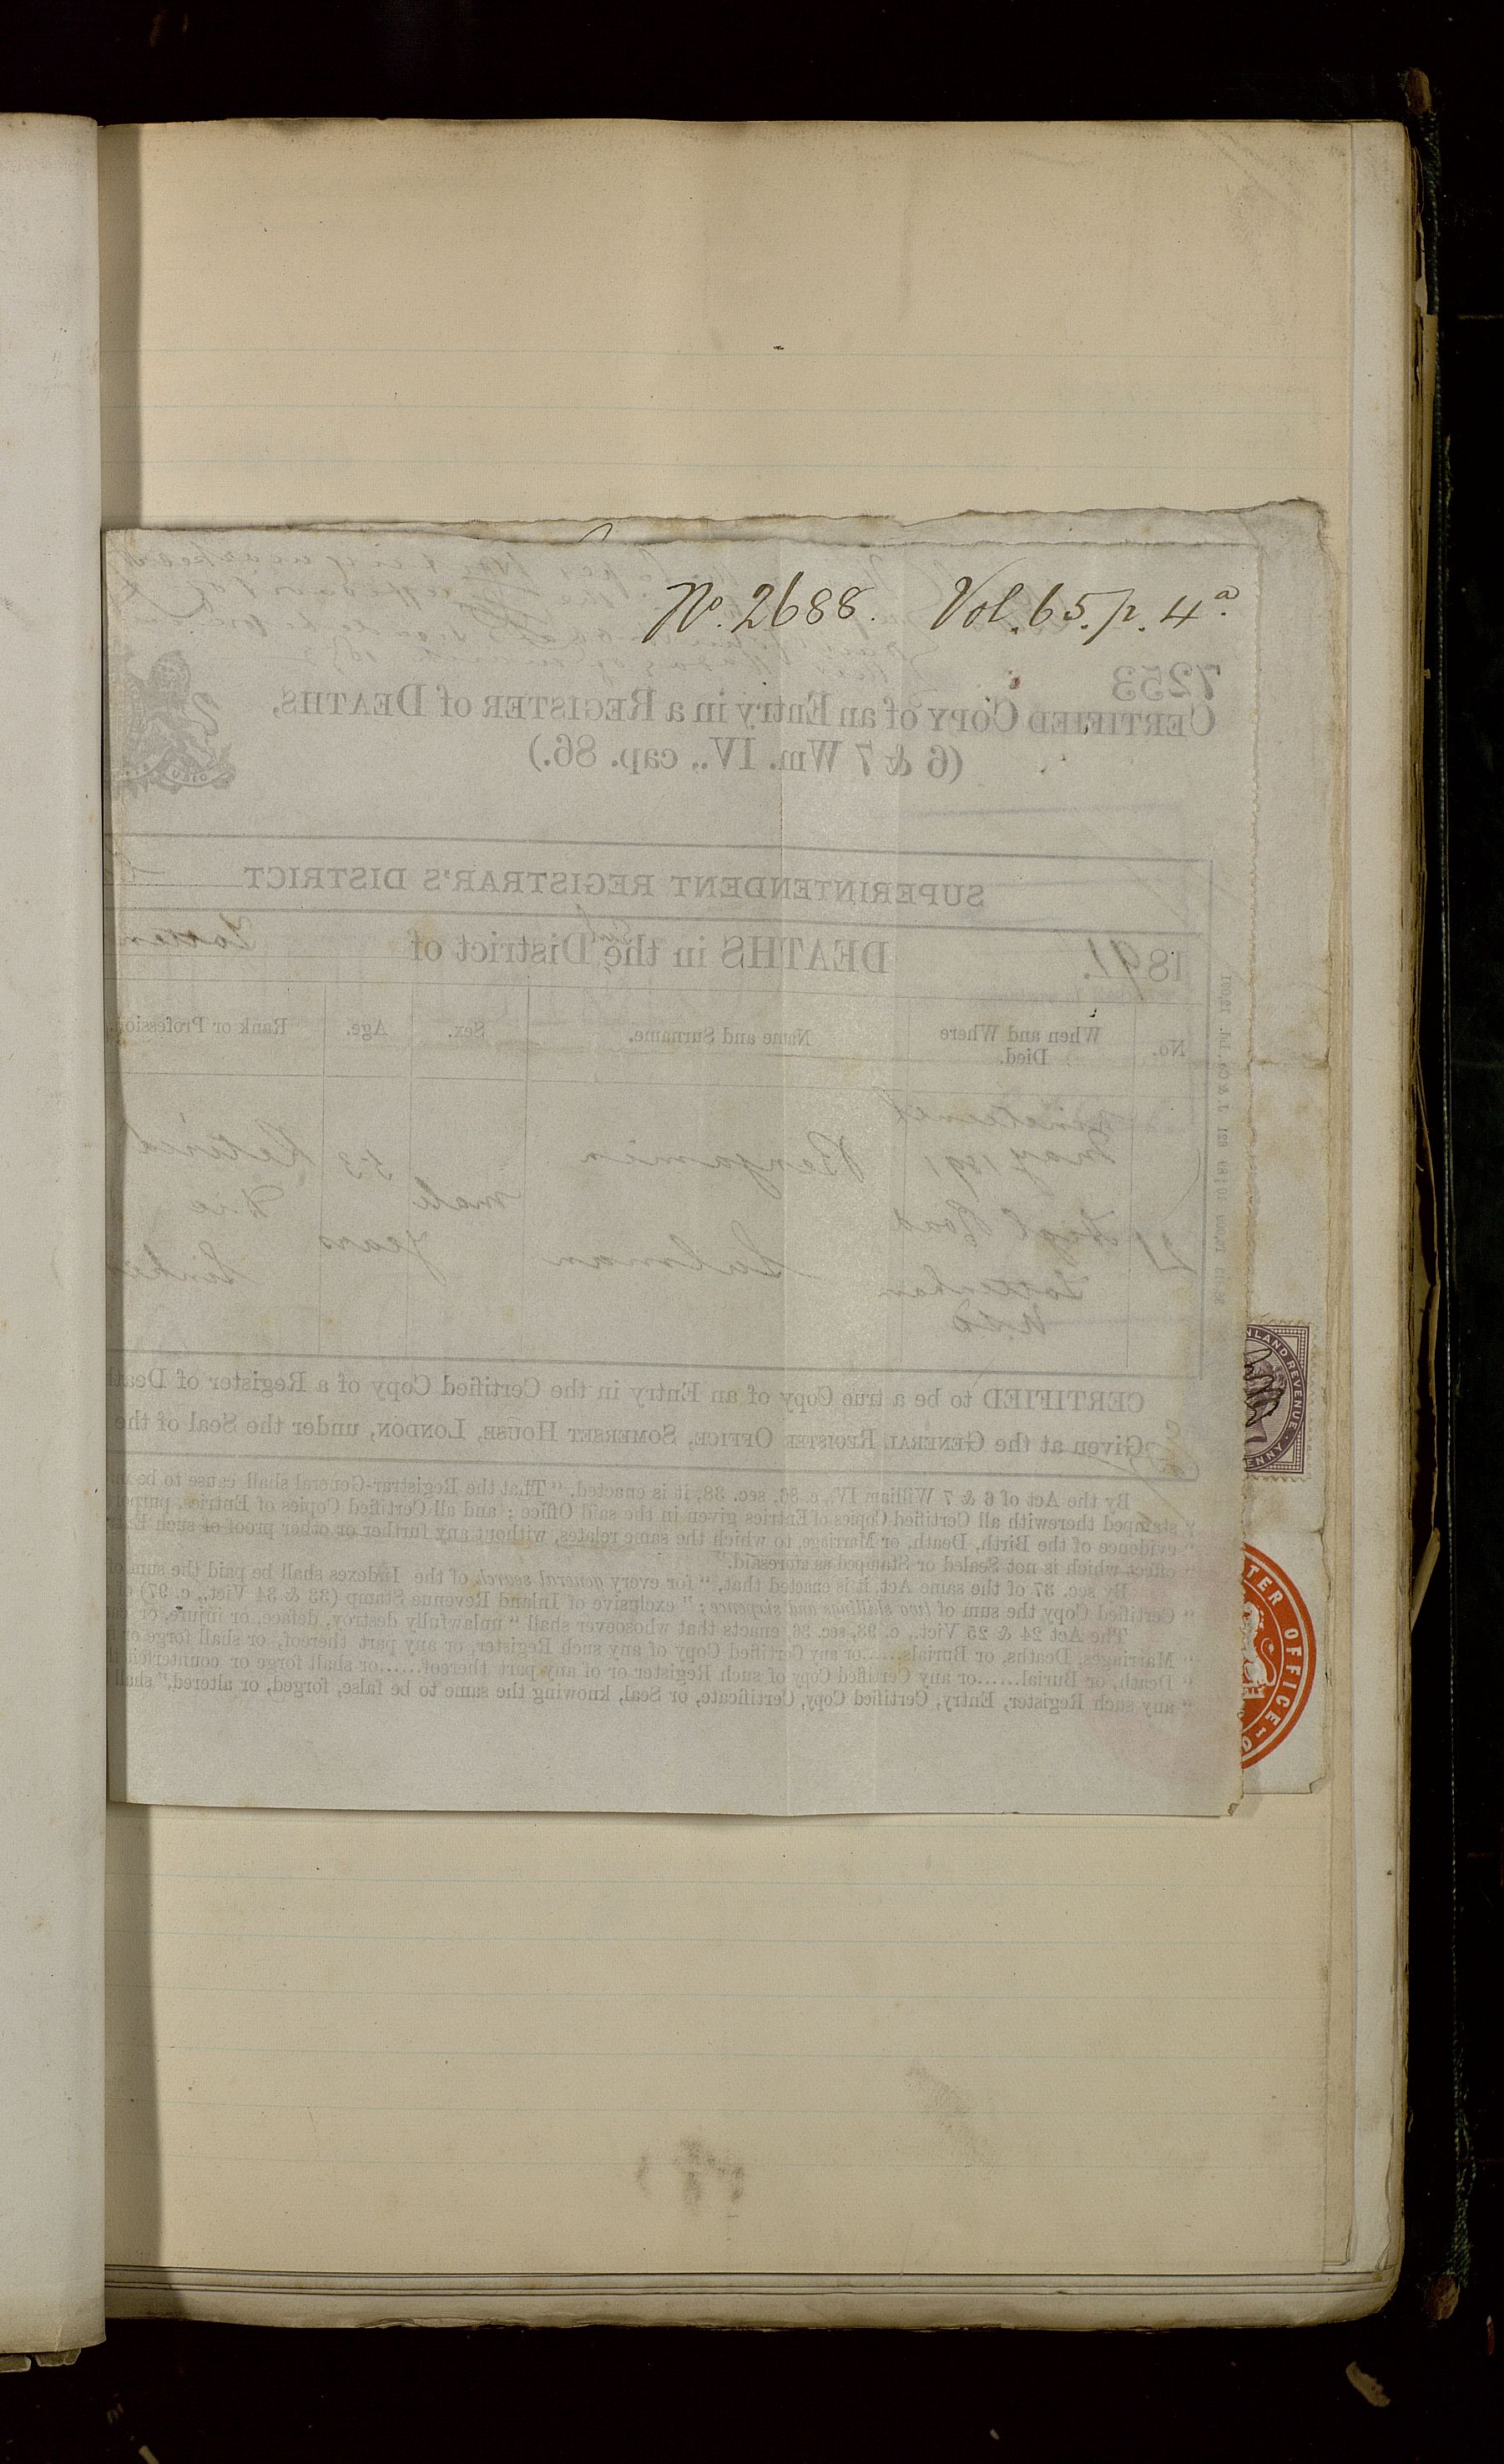 No. 2688. Vol. 65. p. 4a.
7253
CERTIFIED COPY of an Entry in a REGISTER of DEATHS.
(6 & 7 Wm. IV., cap. 86.)
SUPERINTENDENT REGISTRAR'S DISTRICT
1891. DEATHS in the Sub District of Totten
No. When and Where Died. Name and Surname. Sex. Age. Rank or Profession.
21 Nineteenth May 1891 High Road Tottenham Benjamin male 53 years Retired Die Sinker
CERTIFIED to be a true Copy of an Entry in the Certified Copy of a Register of Death
Given at the GENERAL REGISTER OFFICE, SOMERSET HOUSE, LONDON, under the Seal of the
By the Act of 6 & 7 William IV., c. 86, sec. 38, it is enacted, "That the Registrar-General shall cause to be
stamped therewith all Certified Copies of Entries given in the said Office; and all Certified Copies of Entries, purpor
"evidence of the Birth, Death, or Marriage, to which the same relates, without any further or other proof of such
"effect which is not Sealed or Stamped as aforesaid."
By sec. 37 of the same Act, it is enacted that, "for every general search of the Indexes shall be paid the sum of
"Certified Copy the sum of two shillings and sixpence;" exclusive of Inland Revenue Stamp (33 & 34 Vict., c. 97)
The Act 24 & 25 Vict., c. 98, sec. 36, enacts that whosoever shall "unlawfully destroy, deface, or injure, or
"Marriages, Deaths, or Burials......or any Certified Copy of any such Register, or any part thereof, or shall forge or
"Death, or Burial......or any Certified Copy of such Register or of any part thereof......or shall forge or counterfeit
"any such Register, Entry, Certified Copy, Certificate, or Seal, knowing the same to be false, forged, or altered," shall
NLAND REVENUE
ENNY
TER OFFICE